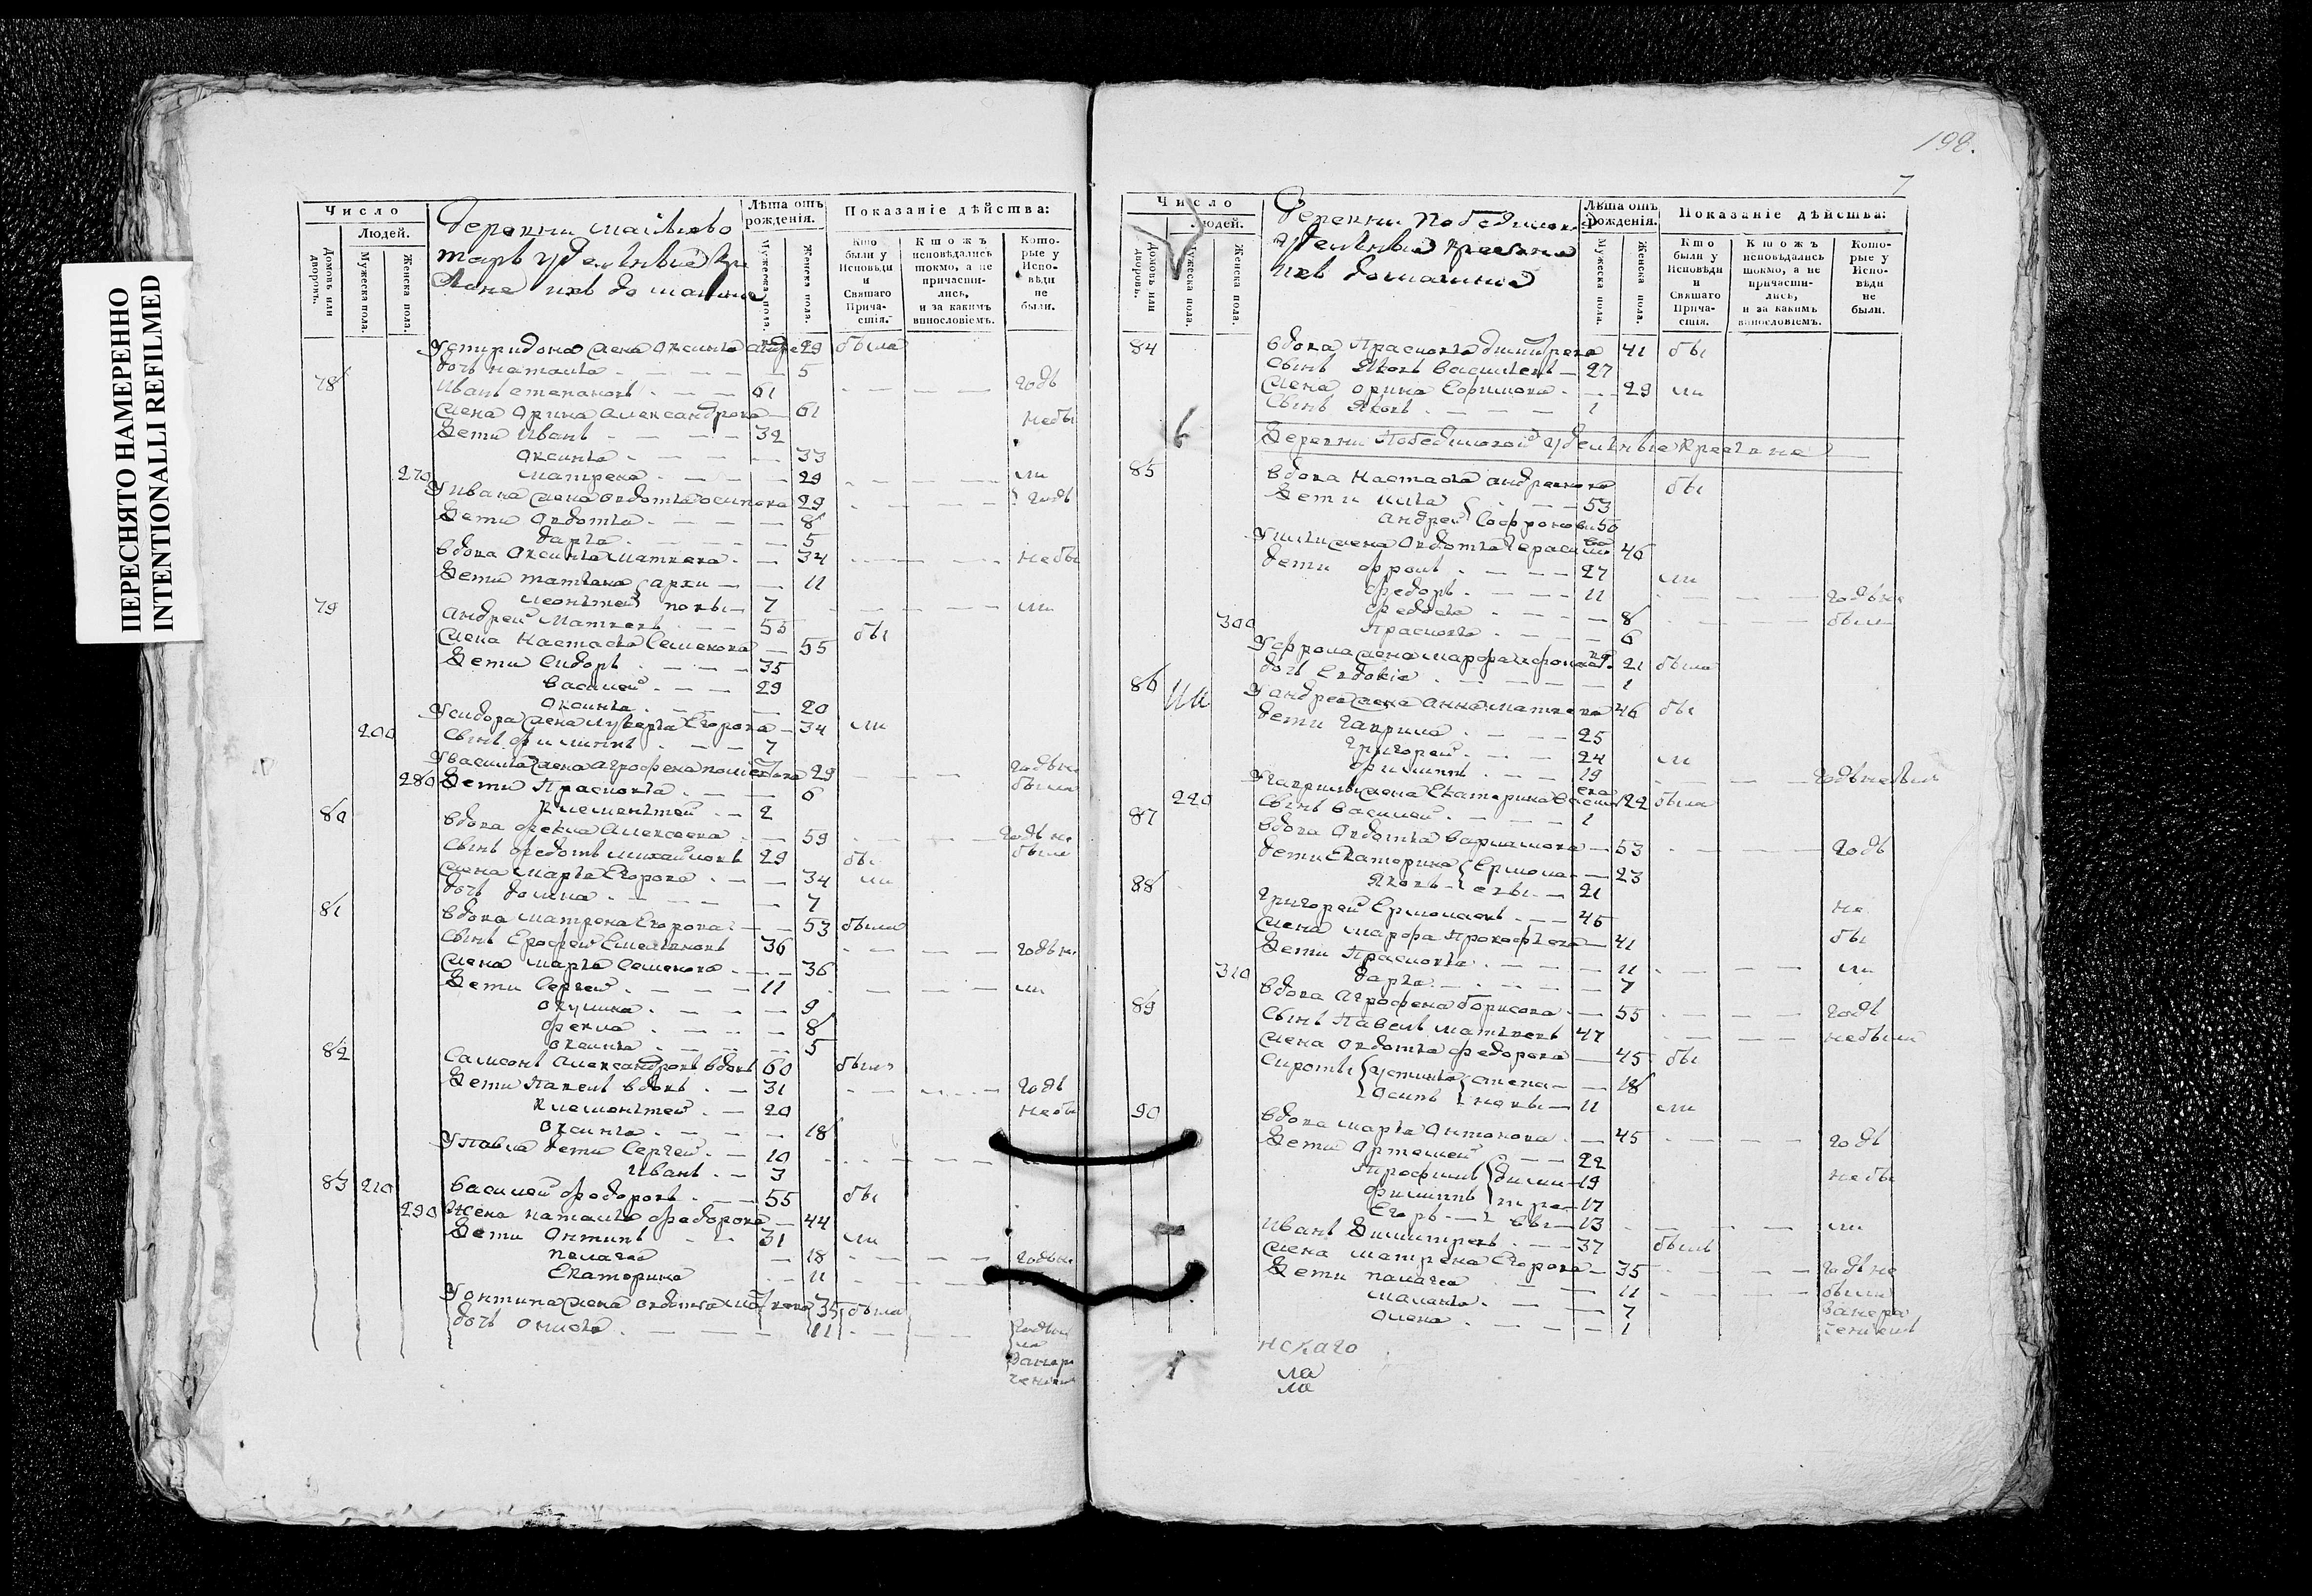 ПЕРЕСНЯТО НАМЕРЕННО
INTENTIONALLI REFILMED
Число
Людей.
Домовъ или дворовъ.
Мужеска пола.
Женска пола.
Деревни
их домашние
Лѣта отъ рожденія.
Мужеска пола.
Женска пола.
Показаніе дѣйства:
Кто были у Исповѣди и Святаго Причастія.
Ктожъ исповѣдались токмо, а не причастились, и за какимъ винословіемъ.
Которые у Исповѣди не были.
Устиридона жена Оксинья 29 была
дочь наталья 5
78 Иванъ степановъ 61 годъ
жена Орина Александрова 61 небы
Дети Иванъ 32
Оксинья 33
270 матрена 29 ли
У ивана жена овдотья осипова 29 годъ
Дети Овдотья 8
дарья 5
вдова Оксинья матвеева 34 небы
Дети татьяна 11
леонтей 7 ли
79 андрей Матвеевъ 55 бы
жена Настасья Семенова 55
Дети Сидоръ 35
василей 29
Оксинья 20
У сидора жена лукерья Егорова 34 ли
200 сынъ филиппъ 7
У василья жена Агрофена 29 годъ не
280 Дети Прасковья 6 была
Клементей 2
80 вдова фекла Алексеева 59 годъ не
сынъ федотъ михайловъ 29 бы была
жена марья Егорова 34 ли
дочь домна 7
81 вдова матрена Егорова 53 была
сынъ Ерофей Емельяновъ 36 годъ не
жена марья Семенова 36
Дети Сергей 11 ли
окулина 9
фекла 8
оксинья 5
82 Самсонъ Александровъ вдовъ 60 былъ
Дети Павелъ вдовъ 31 годъ
Клементей 20 небы
оксинья 18
У павла дети Сергей 10
Иванъ 3
83 210 василей федоровъ 55 бы
290 Жена наталья федорова 44
Дети Онтипъ 31 ли
пелагея 18 годъ не
Екатерина 11
У онтипа жена овдотья 35 была
дочь онисья 11
198.
7
Число
Людей.
Домовъ или дворовъ.
Мужеска пола.
Женска пола.
Деревни
удельныя крестьяне
ихъ домашния
Лѣта отъ рожденія.
Мужеска пола.
Женска пола.
Показаніе дѣйства:
Кто были у Исповѣди и Святаго Причастія.
Ктожъ исповѣдались токмо, а не причастились, и за какимъ винословіемъ.
Которые у Исповѣди не были.
84 вдова Прасковья дмитрева 41 бы
сынъ Яковъ васильевъ 27
жена орина Ефимова 29 ли
сынъ Яковъ 1
6
Деревни Победимовой удельныя крестьяне
85 вдова Настасья андреянова бы
Дети илья 53
андрей Софроновы 50
У ильи жена Овдотья герасимова 46
дети фролъ 27 ли
федоръ 11 годъ не
федосья 8 были
300 Прасковья 6
У фрола жена марфа 21 была
дочь Евдокіе 1
86 У андрея жена анна матвеева 46 бы
дети гаврила 25
григорей 24 ли
филиппъ 19 годъ небыли
У гаврилы жена Екатерина 22 была
220 сынъ василей 1
87 вдова Овдотья варламова 53 годъ
дети Екатерина Ермола 23
Яковъ евы 21
88 григорей Ермолаевъ 45 не
жена марфа Прокофьева 41 бы
Дети Прасковья 11 ли
310 дарья 7
89 вдова Агрофена борисова 55 годъ
сынъ Павелъ матвеевъ 47 небыли
жена овдотья федорова 45 бы
Сироты устинья степа 18
Осипъ новы 11 ли
90 вдова марья Онтонова 45 годъ
Дети Ортемей 22
Трофимъ дими 19 небы
филиппъ тре 17
Егоръ евы 13 ли
Иванъ Димитревъ 37 былъ
жена матрена Егорова 35 годъ не
Дети палагея 11 были
маланья 7
олена 1
1
нскаго
ла
ла